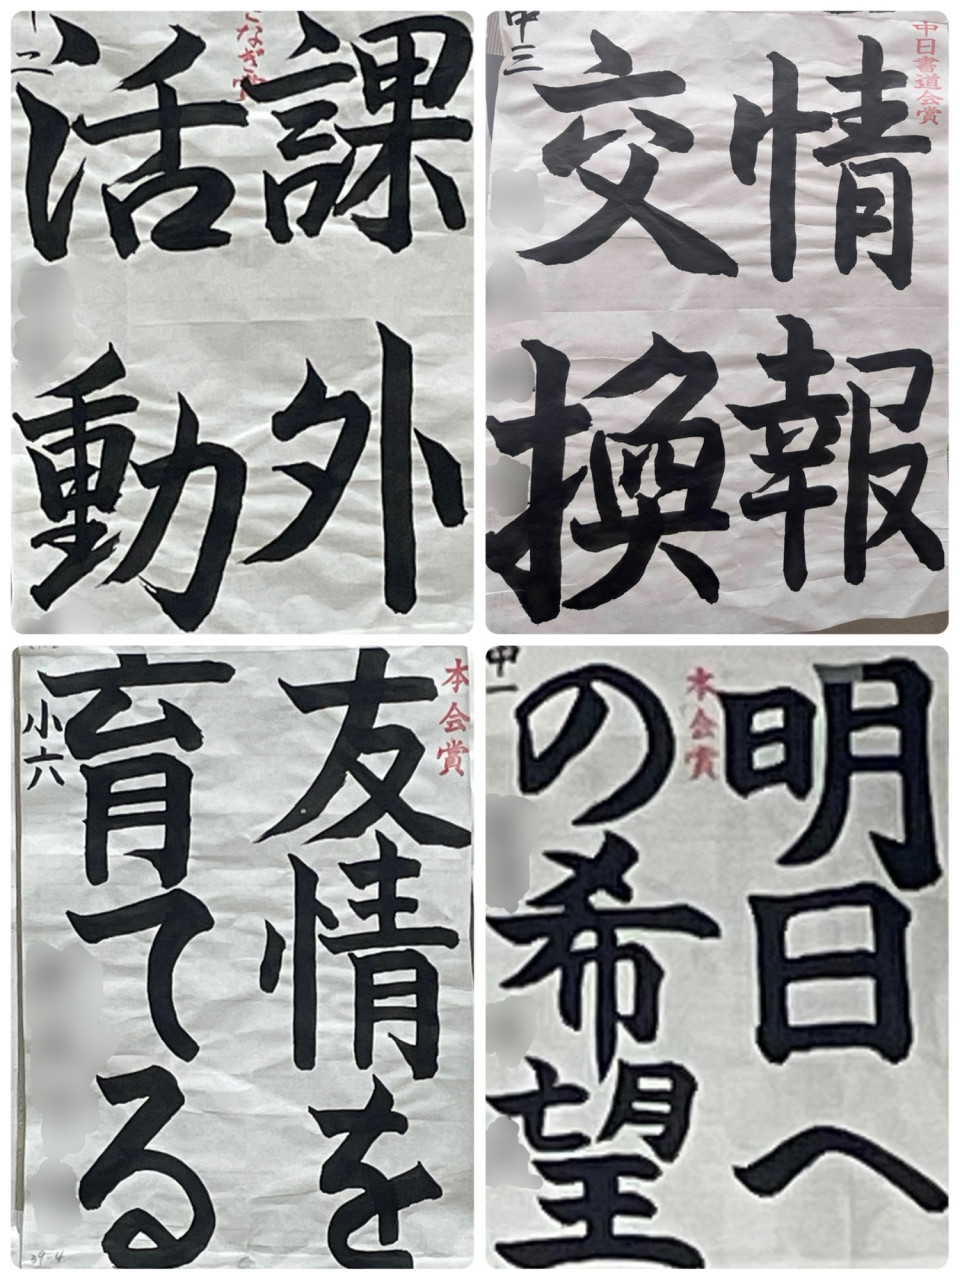 課外
活動
なぎ賞
二
中日書道会賞
情報
交換
中三
本会賞
友情を
育てる
小六
39-4
本会賞
明日へ
の希望
中一